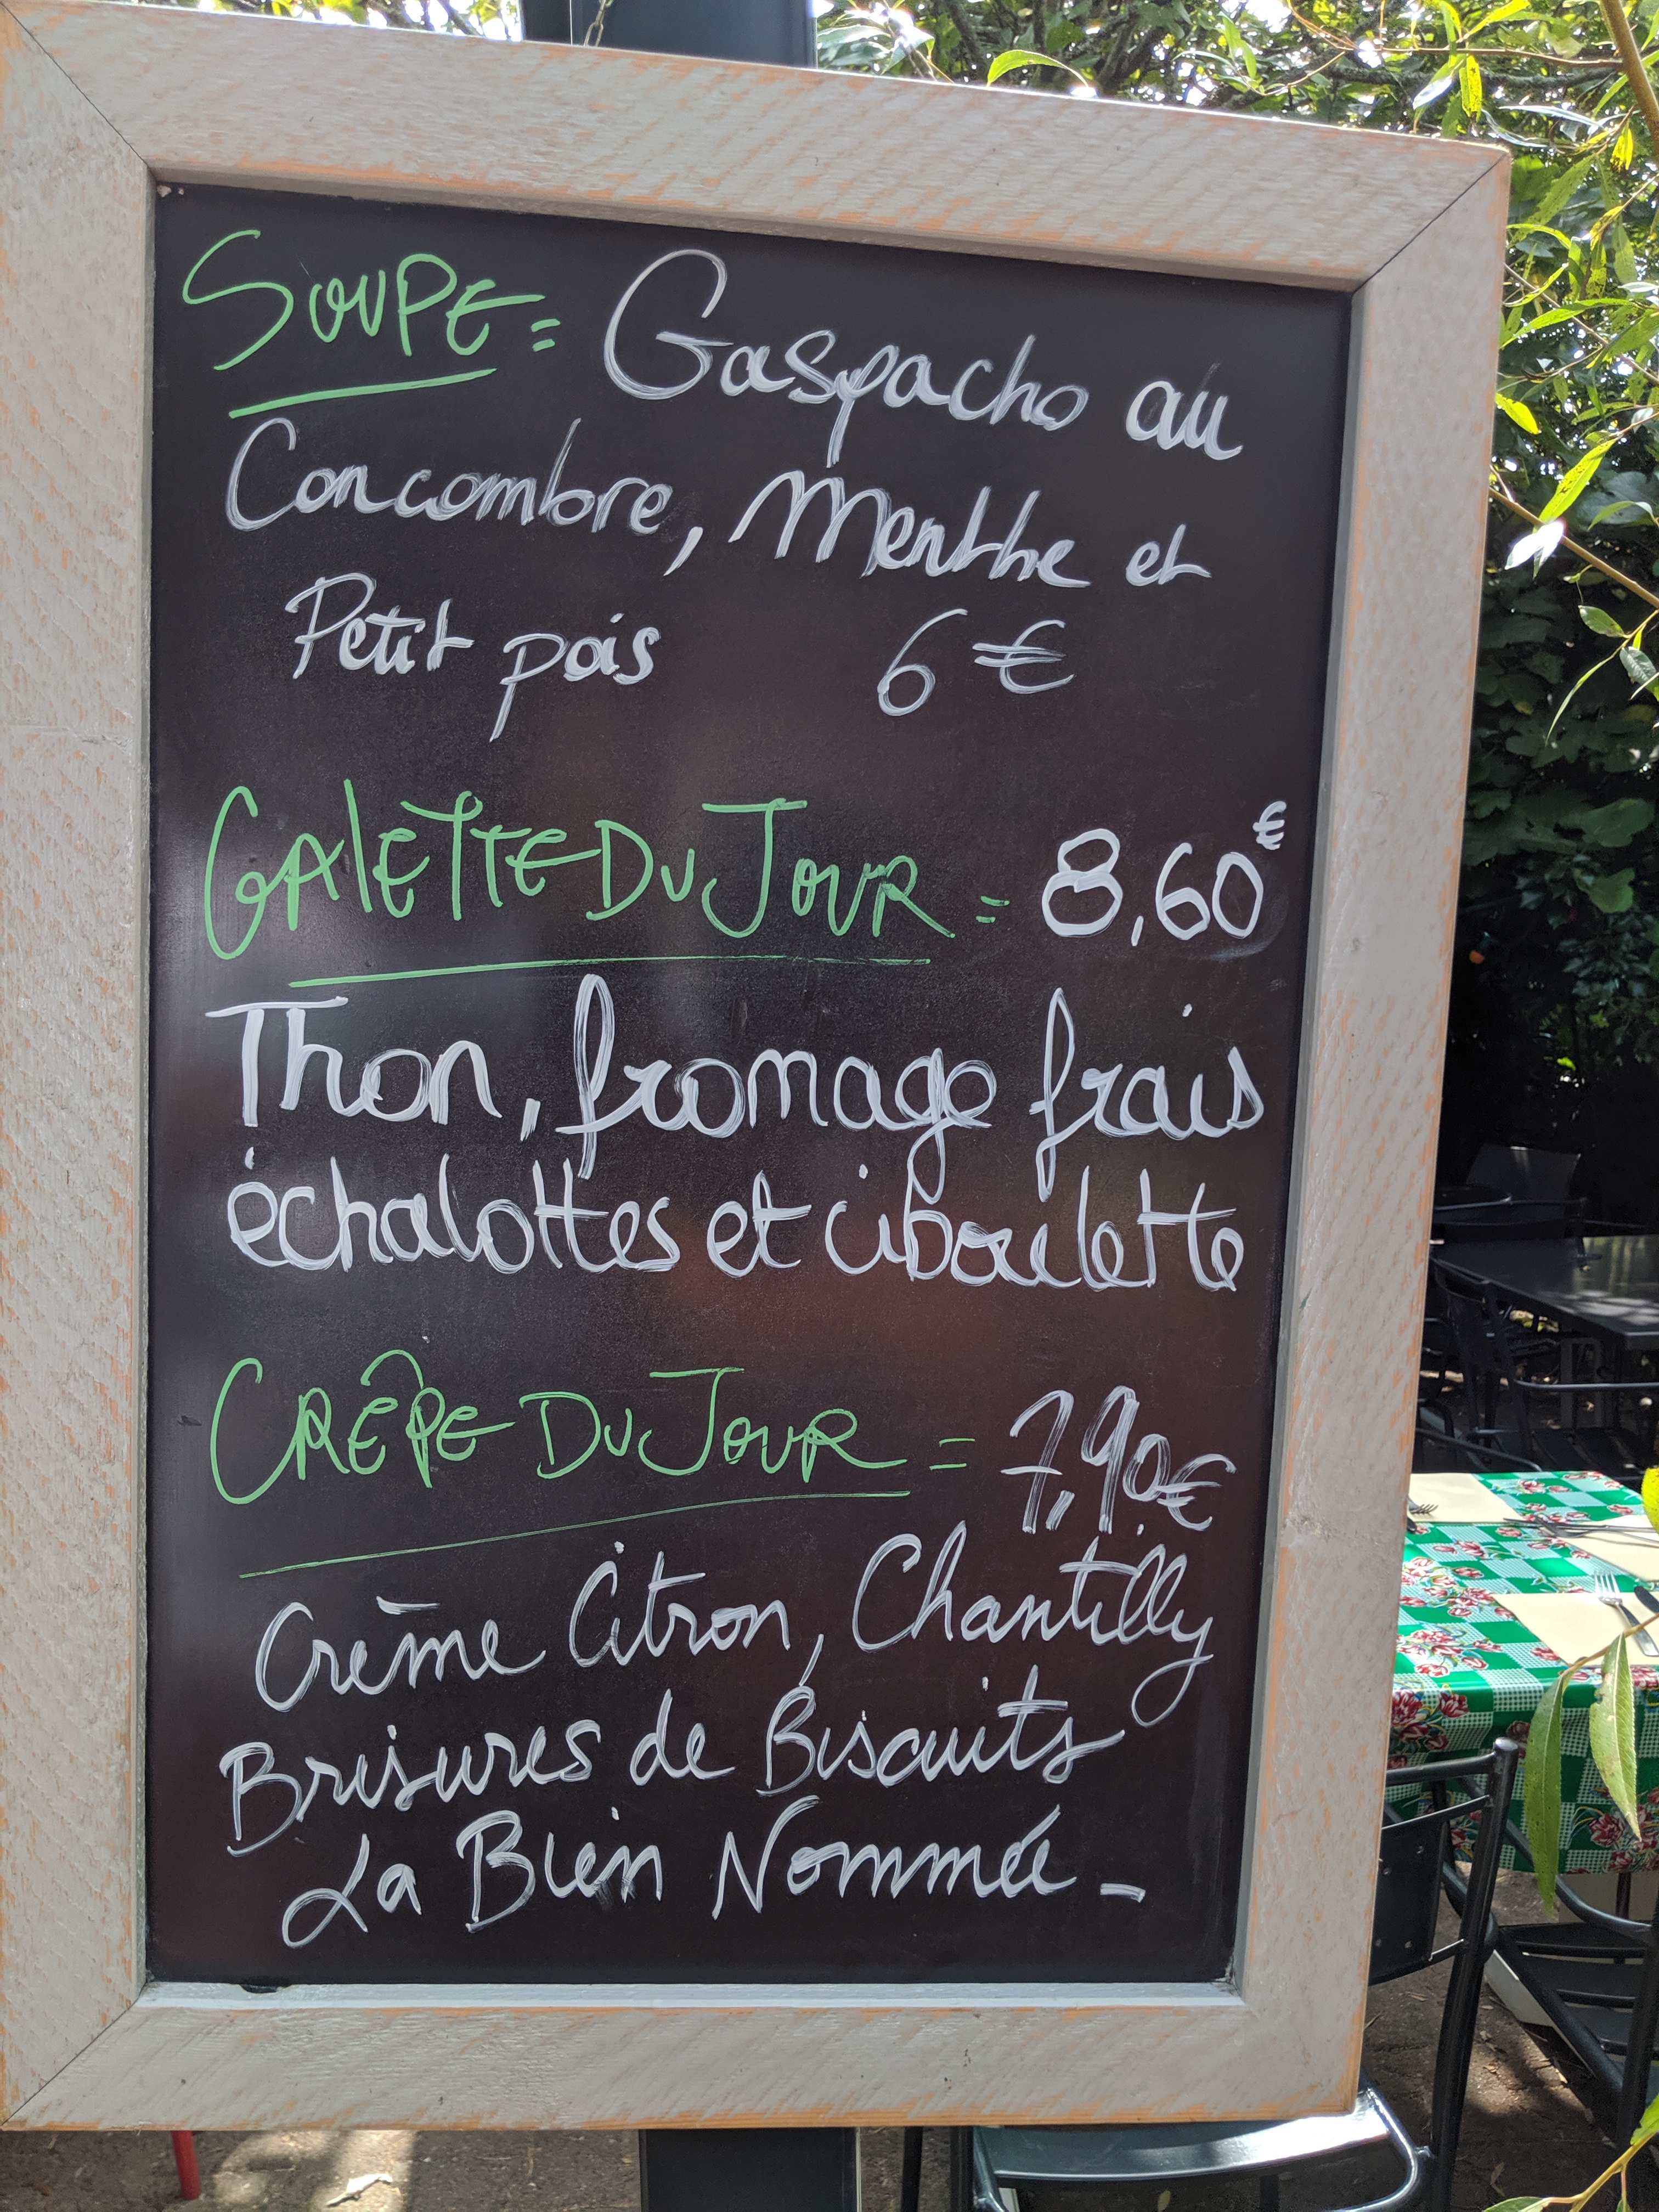 SOUPE = Gaspacho au
Concombre, Menthe et
Petit pois 6 €
GAlETTE DU JOUR = 8,60 €
Thon, fromage frais
échalottes et ciboulette
CRÊPE DU JOUR = 7,90 €
Crème Citron, Chantilly
Brisures de Biscuits
La Bien Nommée -